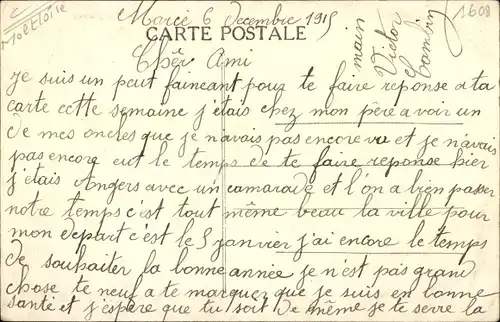 Marcé 6 Decembre 1915
1608
CARTE POSTALE
Chèr Ami
Je suis un peut faineant pour te faire reponse a ta
carte cette semaine j'etais chez mon père a voir un
de mes oncles que je n'avais pas encore vu et je n'avais
pas encore eut le temps de te faire reponse hier
j'etais Angers avec un camarade et l'on a bien passer
notre temps c'est tout même beau la ville pour
mon depart c'est le 5 janvier j'ai encore le temps
de souhaiter la bonne année je n'est pas grand
chose te neuf a te marquez que je suis en bonne
santé et j'espère que tu soit de même je te serre la
main
Victor